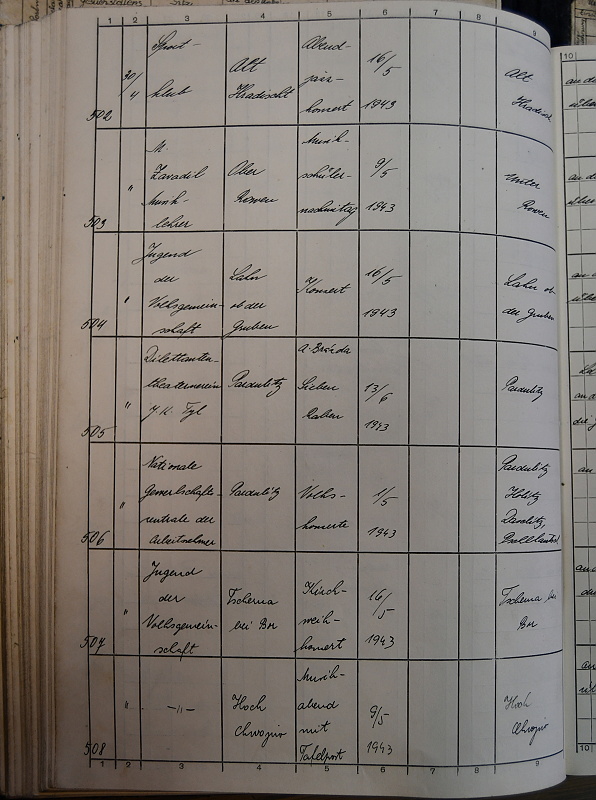 1 2 3 4 5 6 7 8 9
10
502
30/4
Sport-
klub
Alt
Hradischt
Abend-
jazz-
konzert
16/5
1943
Alt
Hradischt
503
"
M.
Zavadil
Musik-
lehrer
Ober
Rowen
Musik-
schüler-
nachmittag
9/5
1943
Unter
Rowen
504
"
Jugend
der
Volksgemein-
schaft
Lahn
ob der
Gruben
Konzert
16/5
1943
Lahn ob
der Gruben
505
"
Dilettanten-
theaterverein
J. K. Tyl
Pardubitz
Sieben
Raben
13/6
1943
Pardubitz
506
"
Nationale
Gewerkschafts-
zentrale der
Arbeitnehmer
Pardubitz
Volks-
konzerte
1/5
1943
Pardubitz
Holitz
507
"
Jugend
der
Volksgemein-
schaft
Tscherna
bei Bor
Kirch-
weih-
konzert
16/5
1943
Tscherna bei
Bor
508
"
—"—
Hoch
Chvojno
Musik-
abend
mit
9/5
1943
Hoch
Chvojno
1 2 3 4 5 6 7 8 9
10